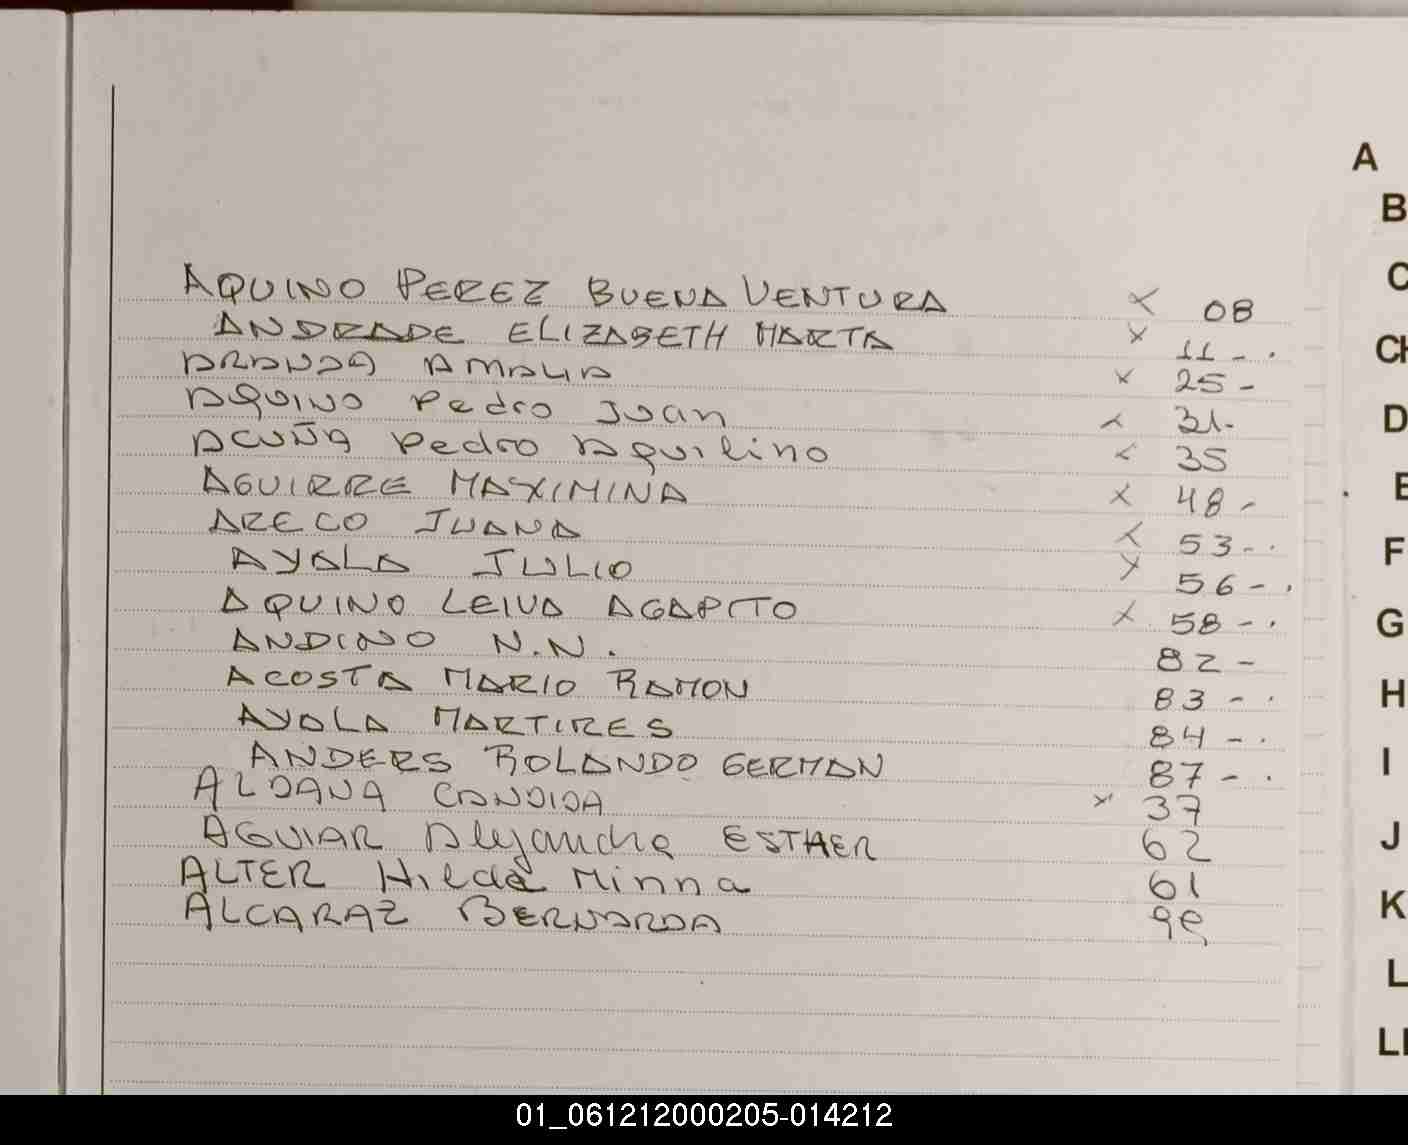 AQUINO PEREZ BUENA VENTURA x 08
ANDRADE ELIZABETH MARTA x 11-.
ARANDA AMALIA x 25-
AQUINO Pedro Juan x 31-
ACUÑA Pedro Aquilino x 35
AGUIRRE MAXIMINA x 48-
ARECO JUANA x 53-.
AYALA JULIO x 56-.
AQUINO LEIVA AGAPITO x 58-.
ANDINO N.N. 82-
ACOSTA MARIO RAMON 83-.
AYALA MARTIRES 84-.
ANDERS ROLANDO GERMAN 87-.
ALDANA CANDIDA x 37
AGUIAR Alejandra ESTHER 62
ALTER Hilda Minna 61
ALCARAZ BERNARDA 99
A
B
C
CH
D
E
F
G
H
I
J
K
L
LL
01_061212000205-014212